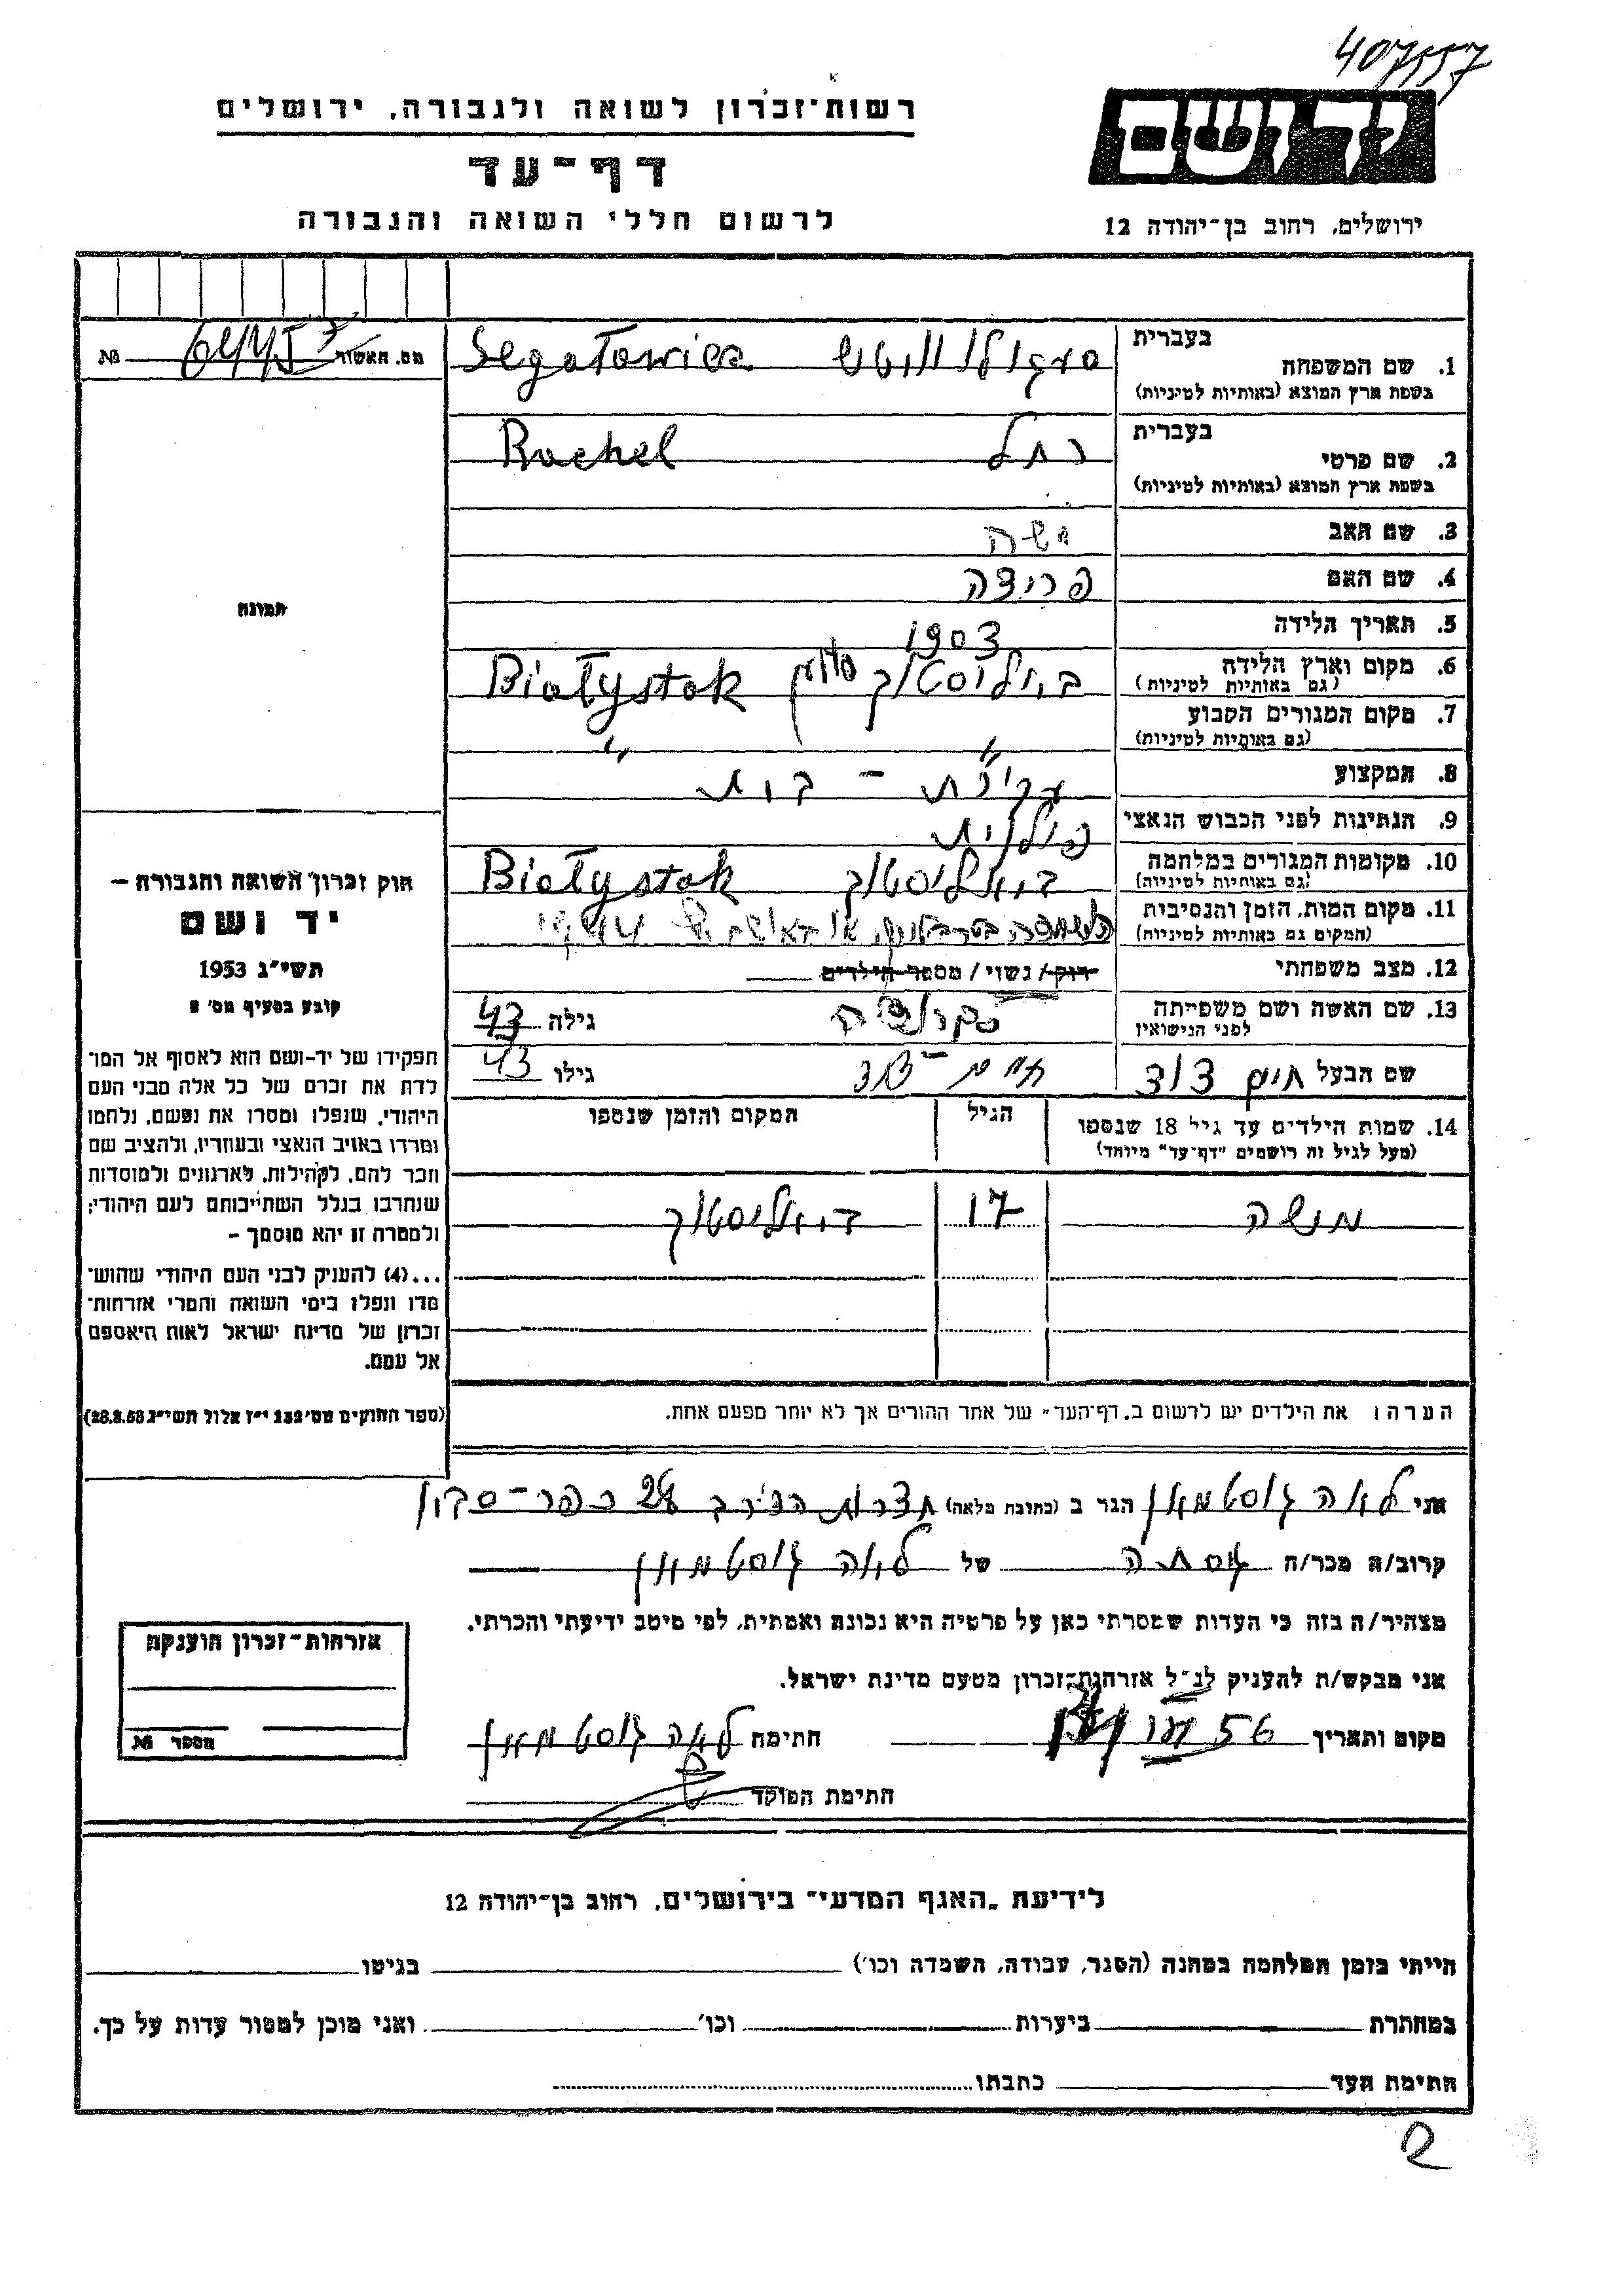 407557
יד ושם
רשות־זכרון לשואה ולגבורה, ירושלים
דף־עד
לרשום חללי השואה והגבורה
ירושלים, רחוב בן־יהודה 12
בעברית
1. שם המשפחה
בשפת ארץ המוצא (באותיות לטיניות)
סגולוויטש Segałowicz
מס. האשור №
בעברית
2. שם פרטי
בשפת ארץ המוצא (באותיות לטיניות)
רחל Rachel
3. שם האב משה
4. שם האם פרידה
5. תאריך הלידה 1903
6. מקום וארץ הלידה
(גם באותיות לטיניות)
ביאליסטוק פולין Białystok
7. מקום המגורים הקבוע
(גם באותיות לטיניות)
" "
8. המקצוע עקרת - בית
9. הנתינות לפני הכבוש הנאצי פולנית
10. מקומות המגורים במלחמה
(גם באותיות לטיניות)
ביאליסטוק Białystok
11. מקום המות, הזמן והנסיבות
(המקום גם באותיות לטיניות)
12. מצב משפחתי רוק / נשוי / מספר הילדים
13. שם האשה ושם משפחתה
לפני הנישואין
גילה 43
שם הבעל חיים דוד
חיים - דוד גילו 43
14. שמות הילדים עד גיל 18 שנספו
(מעל לגיל זה רושמים "דף־עד" מיוחד)
הגיל
המקום והזמן שנספו
משה 17 ביאליסטוק
תמונה
חוק זכרון השואה והגבורה –
יד ושם
תשי"ג 1953
קובע בסעיף מס' 2
תפקידו של יד־ושם הוא לאסוף אל המו־
לדת את זכרם של כל אלה מבני העם
היהודי, שנפלו ומסרו את נפשם, נלחמו
ומרדו באויב הנאצי ובעוזריו, ולהציב שם
וזכר להם, לקהילות, לארגונים ולמוסדות
שנחרבו בגלל השתייכותם לעם היהודי;
ולמטרה זו יהא מוסמך –
...(4) להעניק לבני העם היהודי שהוש־
מדו ונפלו בימי השואה והמרי אזרחות־
זכרון של מדינת ישראל לאות היאספם
אל עמם.
(ספר החוקים מס' 132 י"ז אלול תשי"ג 28.8.53)
הערה: את הילדים יש לרשום ב„דף־העד" של אחד ההורים אך לא יותר מפעם אחת.
אני לאה גוסטמאן הגר ב (כתובת מלאה) 28 כפר-סבא
קרוב/ה מכר/ה של לאה גוסטמאן
מצהיר/ה בזה כי העדות שמסרתי כאן על פרטיה היא נכונה ואמתית, לפי מיטב ידיעתי והכרתי.
אני מבקש/ת להעניק לנ"ל אזרחות־זכרון מטעם מדינת ישראל.
מקום ותאריך 56 חתימה לאה גוסטמאן
חתימת הפוקד
אזרחות־זכרון הוענקה
מספר №
לידיעת „האגף המדעי" בירושלים, רחוב בן־יהודה 12
הייתי בזמן המלחמה במחנה (הסגר, עבודה, השמדה וכו') בגיטו
במחתרת ביערות וכו' ואני מוכן למסור עדות על כך.
חתימת העד כתבתו